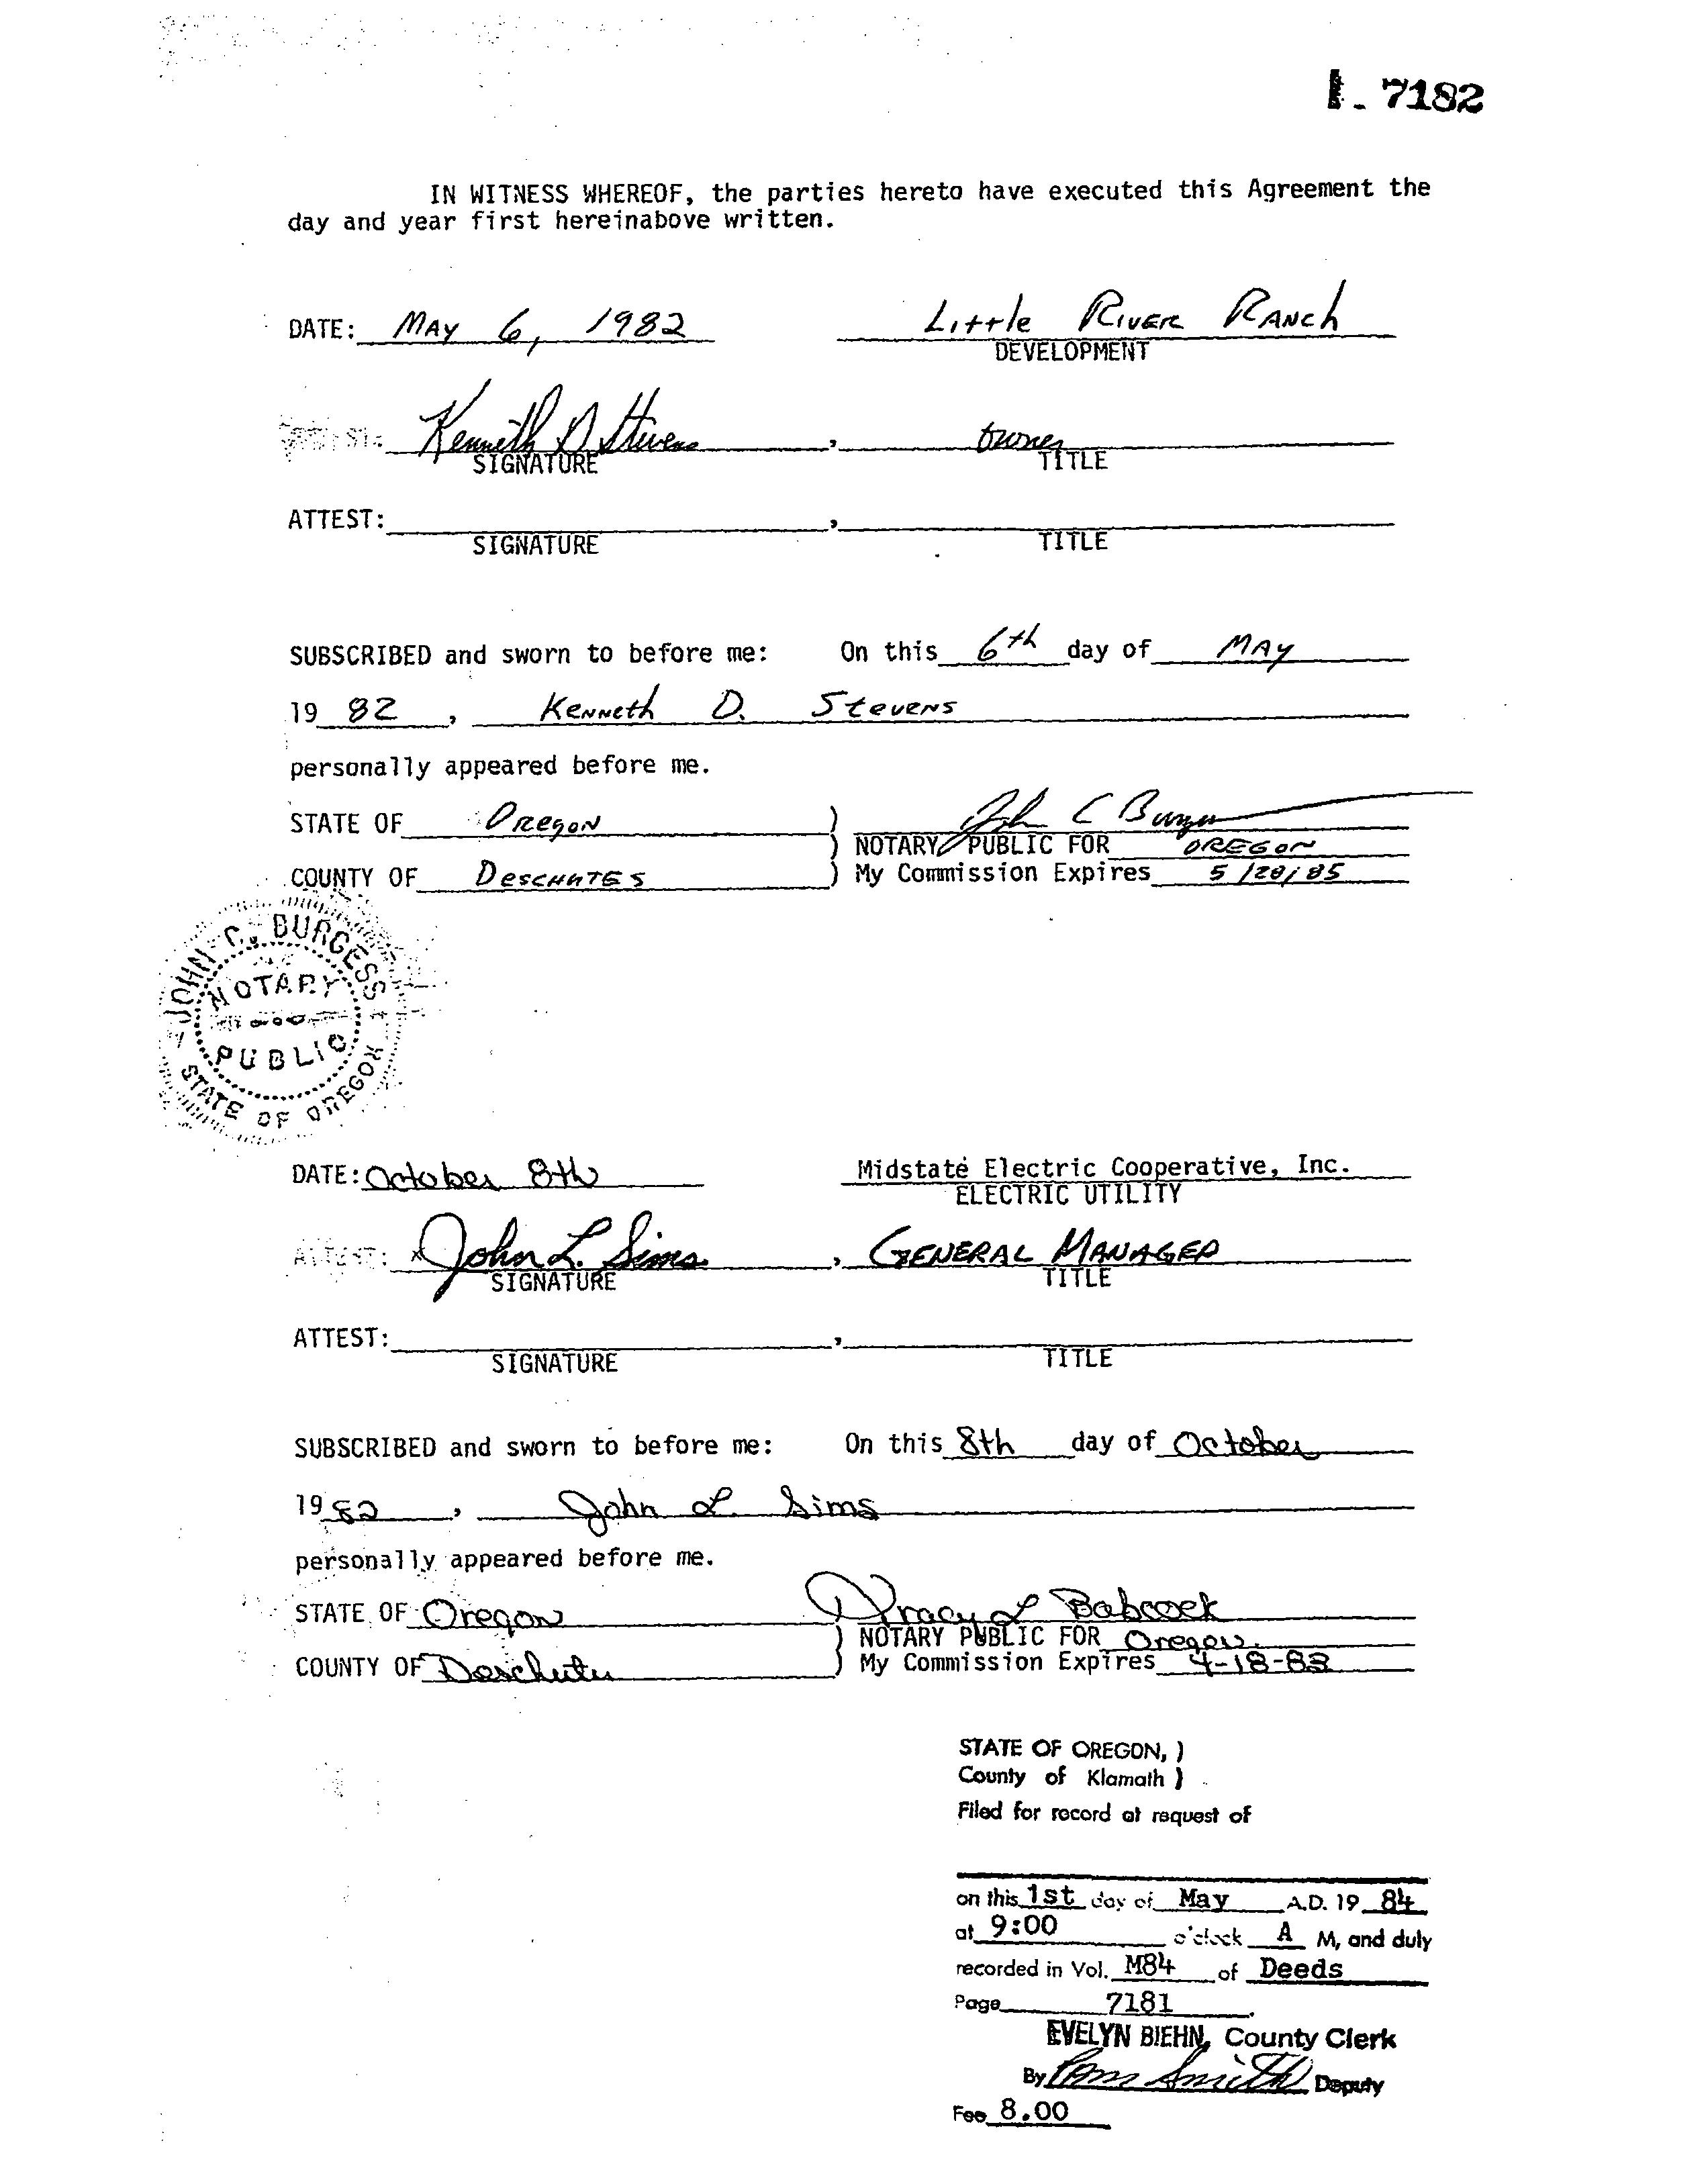 7182
IN WITNESS WHEREOF, the parties hereto have executed this Agreement the
day and year first hereinabove written.
DATE: MAY 6, 1982 Little River Ranch
DEVELOPMENT
Kenneth D Stevens, owner
SIGNATURE TITLE
ATTEST: ,
SIGNATURE TITLE
SUBSCRIBED and sworn to before me: On this 6th day of MAY
19 82, Kenneth D. Stevens
personally appeared before me.
STATE OF Oregon ) John C Burgess
) NOTARY PUBLIC FOR OREGON
COUNTY OF DESCHUTES ) My Commission Expires 5/20/85
JOHN C. BURGESS
NOTARY
PUBLIC
STATE OF OREGON
DATE: October 8th Midstate Electric Cooperative, Inc.
ELECTRIC UTILITY
ATTEST: x John L. Sims, GENERAL MANAGER
SIGNATURE TITLE
ATTEST: ,
SIGNATURE TITLE
SUBSCRIBED and sworn to before me: On this 8th day of October
19 82, John L. Sims
personally appeared before me.
STATE OF Oregon ) Tracy L Babcock
) NOTARY PUBLIC FOR Oregon.
COUNTY OF Deschutes ) My Commission Expires 4-18-83
STATE OF OREGON, )
County of Klamath )
Filed for record at request of
on this 1st day of May A.D. 19 84
at 9:00 o'clock A M, and duly
recorded in Vol. M84 of Deeds
Page 7181.
EVELYN BIEHN, County Clerk
By Pam Smith Deputy
Fee 8.00